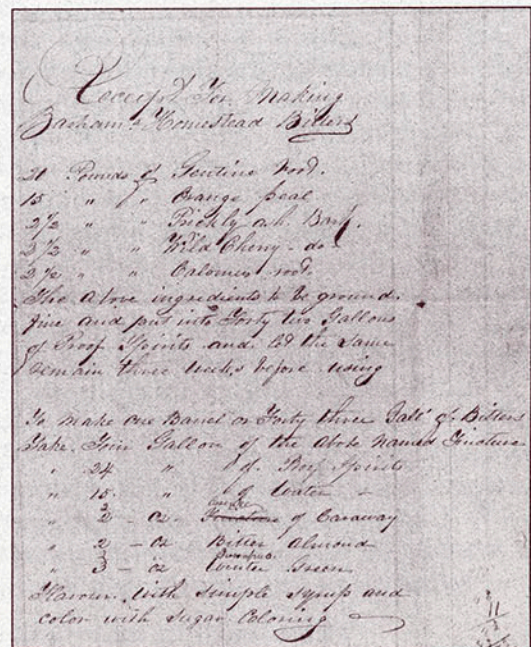 Receipt For Making
Homestead Bitters
20 Pounds of Gentine root.
15 " " Orange peal
2 1/2 " " Prickly ash. Bark.
2 1/2 " " Wild Cherry - do -
2 1/2 " " Calomus root.
The above ingredients to be ground
fine and put into Forty two Gallons
of Proof Spirits and let the same
remain three weeks before using
To make one Barrel or Forty three Gall of Bitters
Take Four Gallon of the above named Tincture
" 24 " of Spirits
" 15 " of Water
" 2 - oz - of Caraway
" 2 - oz Bitter Almond
" 3 - oz Winter Green
Flavour with simple syrup and
color with sugar coloring